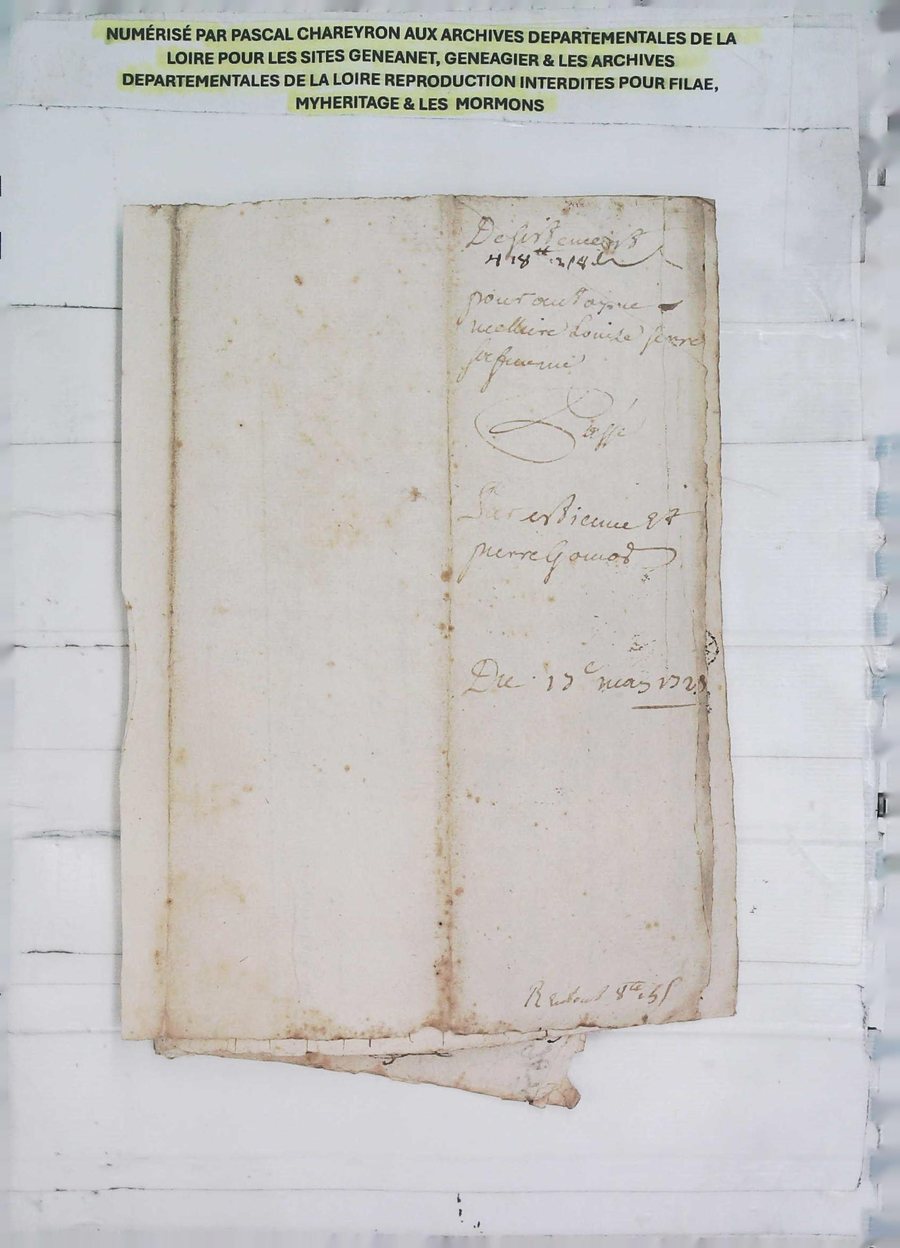 NUMÉRISÉ PAR PASCAL CHAREYRON AUX ARCHIVES DEPARTEMENTALES DE LA
LOIRE POUR LES SITES GENEANET, GENEAGIER & LES ARCHIVES
DEPARTEMENTALES DE LA LOIRE REPRODUCTION INTERDITES POUR FILAE,
MYHERITAGE & LES MORMONS
Desistement
pour antoyne
Louise serre
sa femme
Passé
Par estienne et
pierre
Du 13e may